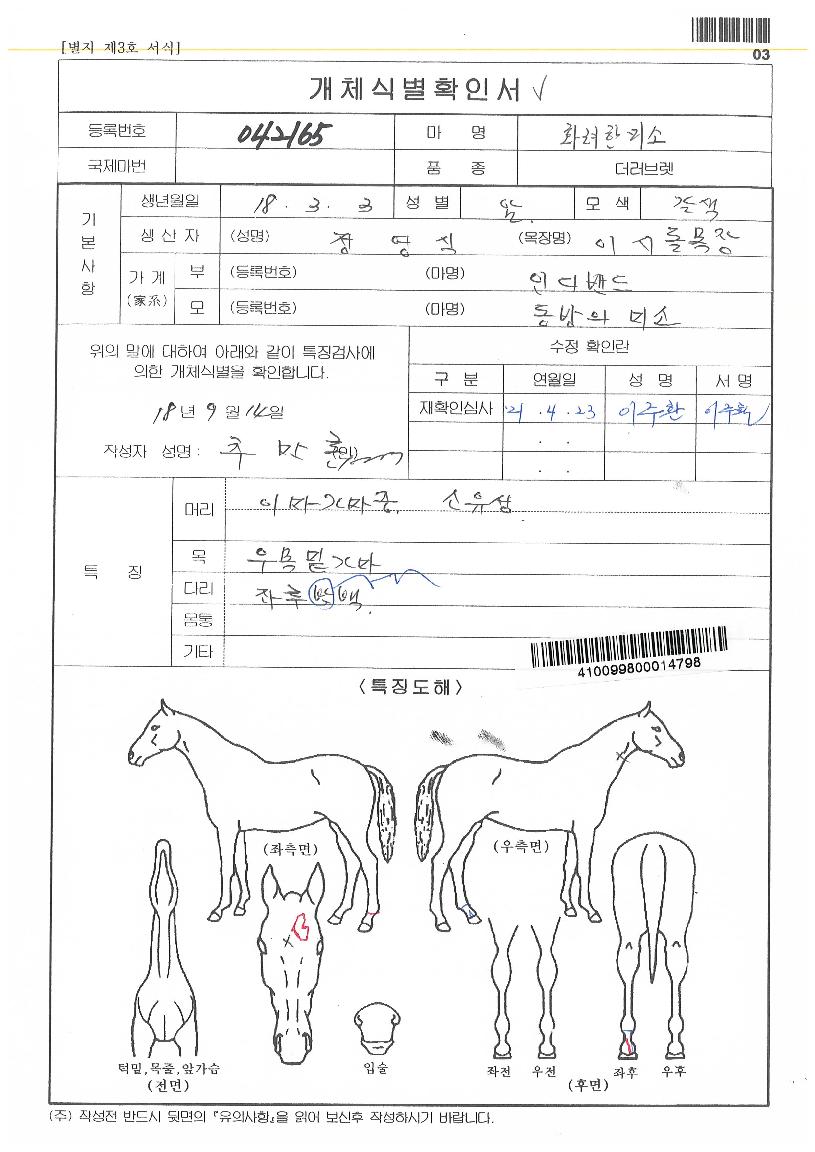 [별지 제3호 서식]
03
개체식별확인서 √
등록번호 042165 마 명 화려한미소
국제마번 품 종 더러브렛
기본사항
생년월일 18 . 3 . 3 성 별 암 모 색 갈색
생 산 자 (성명) 장 영 식 (목장명) 이시돌목장
가 계 (家系) 부 (등록번호) (마명) 인디밴드
모 (등록번호) (마명) 동방의 미소
위의 말에 대하여 아래와 같이 특징검사에
의한 개체식별을 확인합니다.
18년 9월 14일
작성자 성명 :
수정 확인란
구 분 연월일 성 명 서 명
재확인심사 21 . 4 . 23 이주환 이주환
. .
. .
특 징
머리
목 우목밑
다리 좌후 백.
몸통
기타
410099800014798
<특징도해>
(좌측면) (우측면)
턱밑,목줄,앞가슴
(전면)
입술
좌전 우전 좌후 우후
(후면)
(주) 작성전 반드시 뒷면의 『유의사항』을 읽어 보신후 작성하시기 바랍니다.